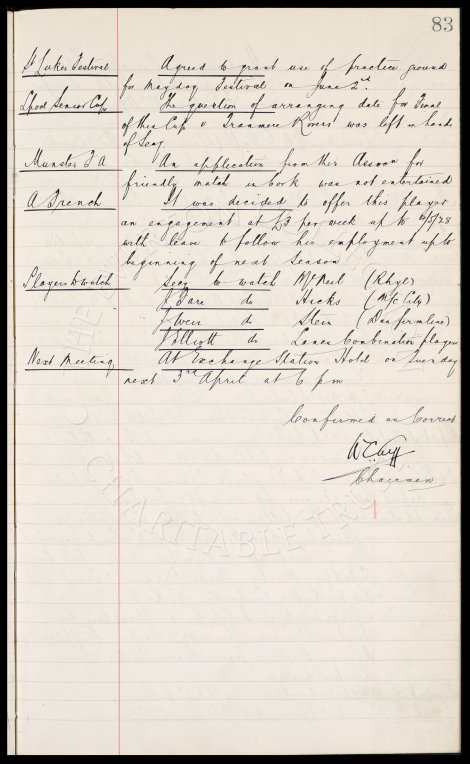 83
St Lukes Festival Agreed to grant use of practice ground
for Mayday Festival on June 2nd.
Lpool Senior Cup The question of arranging date for Final
of this Cup v Tranmere Rovers was left in hands
of Secy.
Munster F A An application from this Assocn for
friendly match in Cork was not entertained
A French It was decided to offer this player
an engagement at £3 per week up to 5/28
with leave to follow his employment up to
beginning of next Season
Players to watch Secy to watch McNeil (Rhyl)
do Hicks (M/c City)
do Stein (Dunfermline)
do Lancs Combination players
Next Meeting At Exchange Station Hotel on Tuesday
next 3rd April at 6 pm
Confirmed as Correct
W C Cuff
Chairman
CHARITABLE TRUST